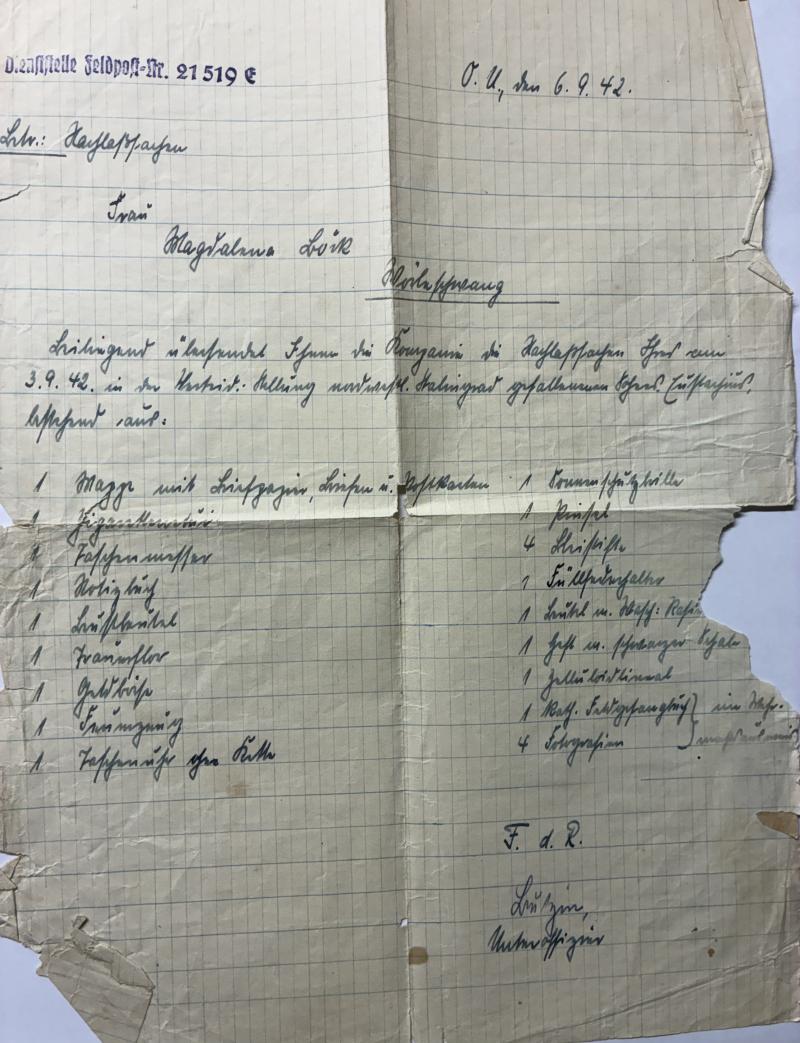 Dienststelle Feldpost-Nr. 21519 E
O. U., den 6. 9. 42.
Betr.: Nachlaßsachen
Frau
Magdalena Böck
Wörleschwang
Beiliegend übersendet Ihnen die Kompanie die Nachlaßsachen Ihres am
3. 9. 42. in der Verteid.-Stellung nordwestl. Stalingrad gefallenen Sohnes Eustachius,
bestehend aus:
1 Mappe mit Briefpapier, Briefen u. Postkarten
1 Zigarettenetui
1 Taschenmesser
1 Notizbuch
1 Brustbeutel
1 Trauerflor
1 Geldbörse
1 Feuerzeug
1 Taschenuhr ohne Kette
1 Sonnenschutzbrille
1 Pinsel
4 Bleistifte
1 Füllfederhalter
1 Beutel m. Wasch-
1 Heft m. schwarzer Schale
1 Zelluloidlineal
1 Kath. Feldgesangbuch } im Wehr-
4 Fotografien } paßausweis
F. d. R.
Unteroffizier